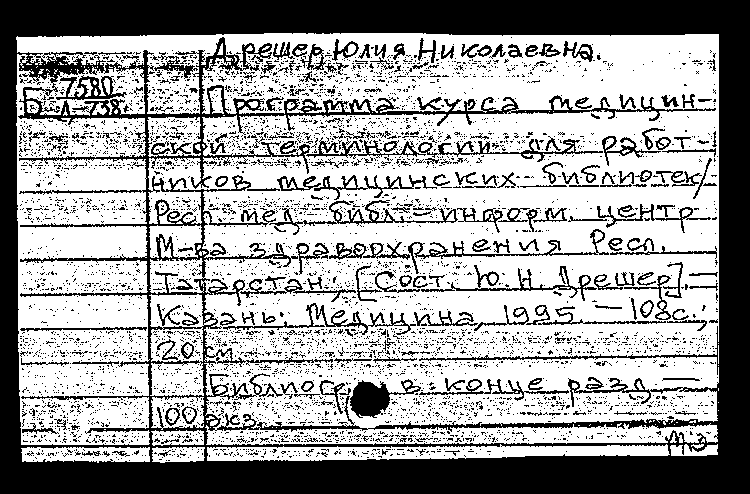 Дрешер Юлия Николаевна.
Б 7580
Л-738.
Программа курса медицин-
ской терминологии для работ-
ников медицинских библиотек/
Респ. мед. библ.-информ. центр
М-ва здравоохранения Респ.
Татарстан; [Сост. Ю. Н. Дрешер]. —
Казань: Медицина, 1995. — 108с.;
20 см.
Библиогр. в конце разд —
100 экз.